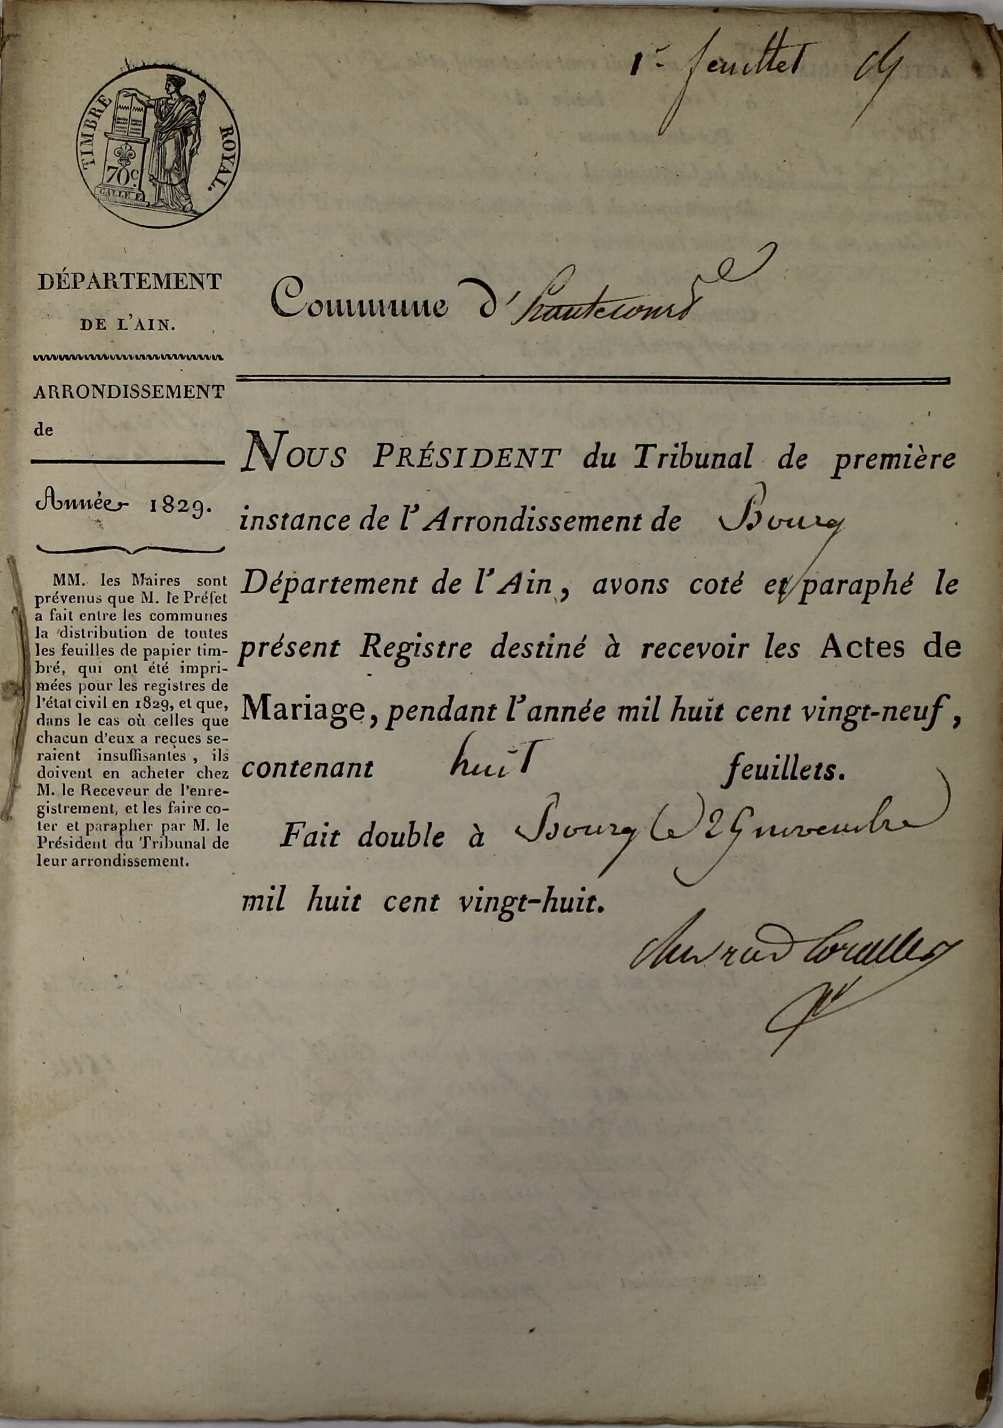 1r feuillet
TIMBRE ROYAL.
70c
DÉPARTEMENT
DE L'AIN.
Commune d'hautecourt
ARRONDISSEMENT
de
Année 1829.
MM. les Maires sont
prévenus que M. le Préfet
a fait entre les communes
la distribution de toutes
les feuilles de papier tim-
bré, qui ont été impri-
mées pour les registres de
l'état civil en 1829, et que,
dans le cas où celles que
chacun d'eux a reçues se-
raient insuffisantes, ils
doivent en acheter chez
M. le Receveur de l'enre-
gistrement, et les faire co-
ter et parapher par M. le
Président du Tribunal de
leur arrondissement.
NOUS PRÉSIDENT du Tribunal de première
instance de l'Arrondissement de Bourg
Département de l'Ain, avons coté et paraphé le
présent Registre destiné à recevoir les Actes de
Mariage, pendant l'année mil huit cent vingt-neuf,
contenant huit feuillets.
Fait double à Bourg le 29 novembre
mil huit cent vingt-huit.